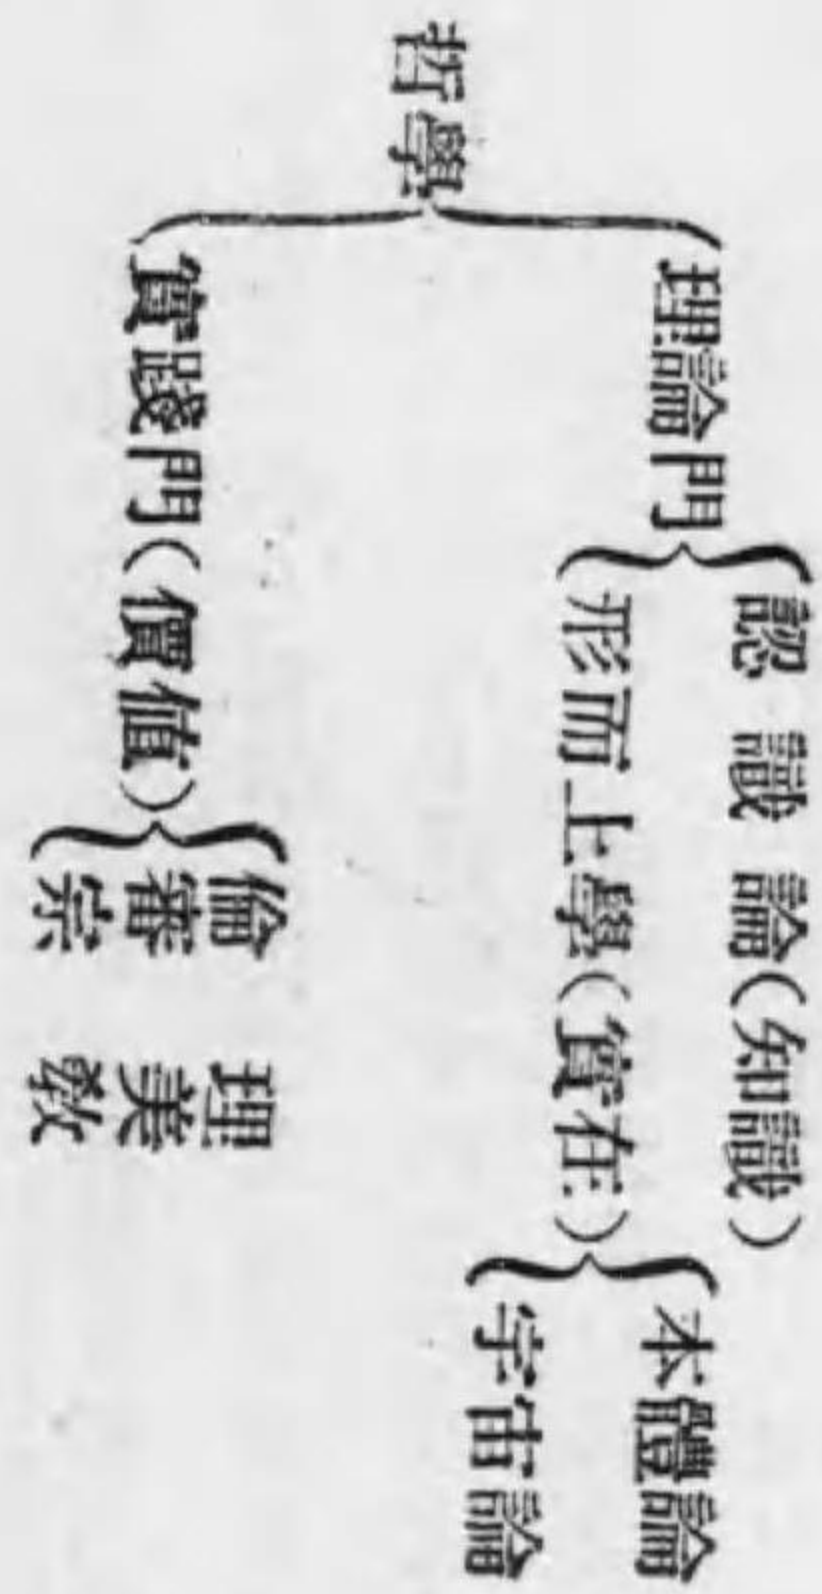 哲學
理論門
認識論(知識)
形而上學(實在)
本體論
宇宙論
實踐門(價值)
倫理
審美
宗教